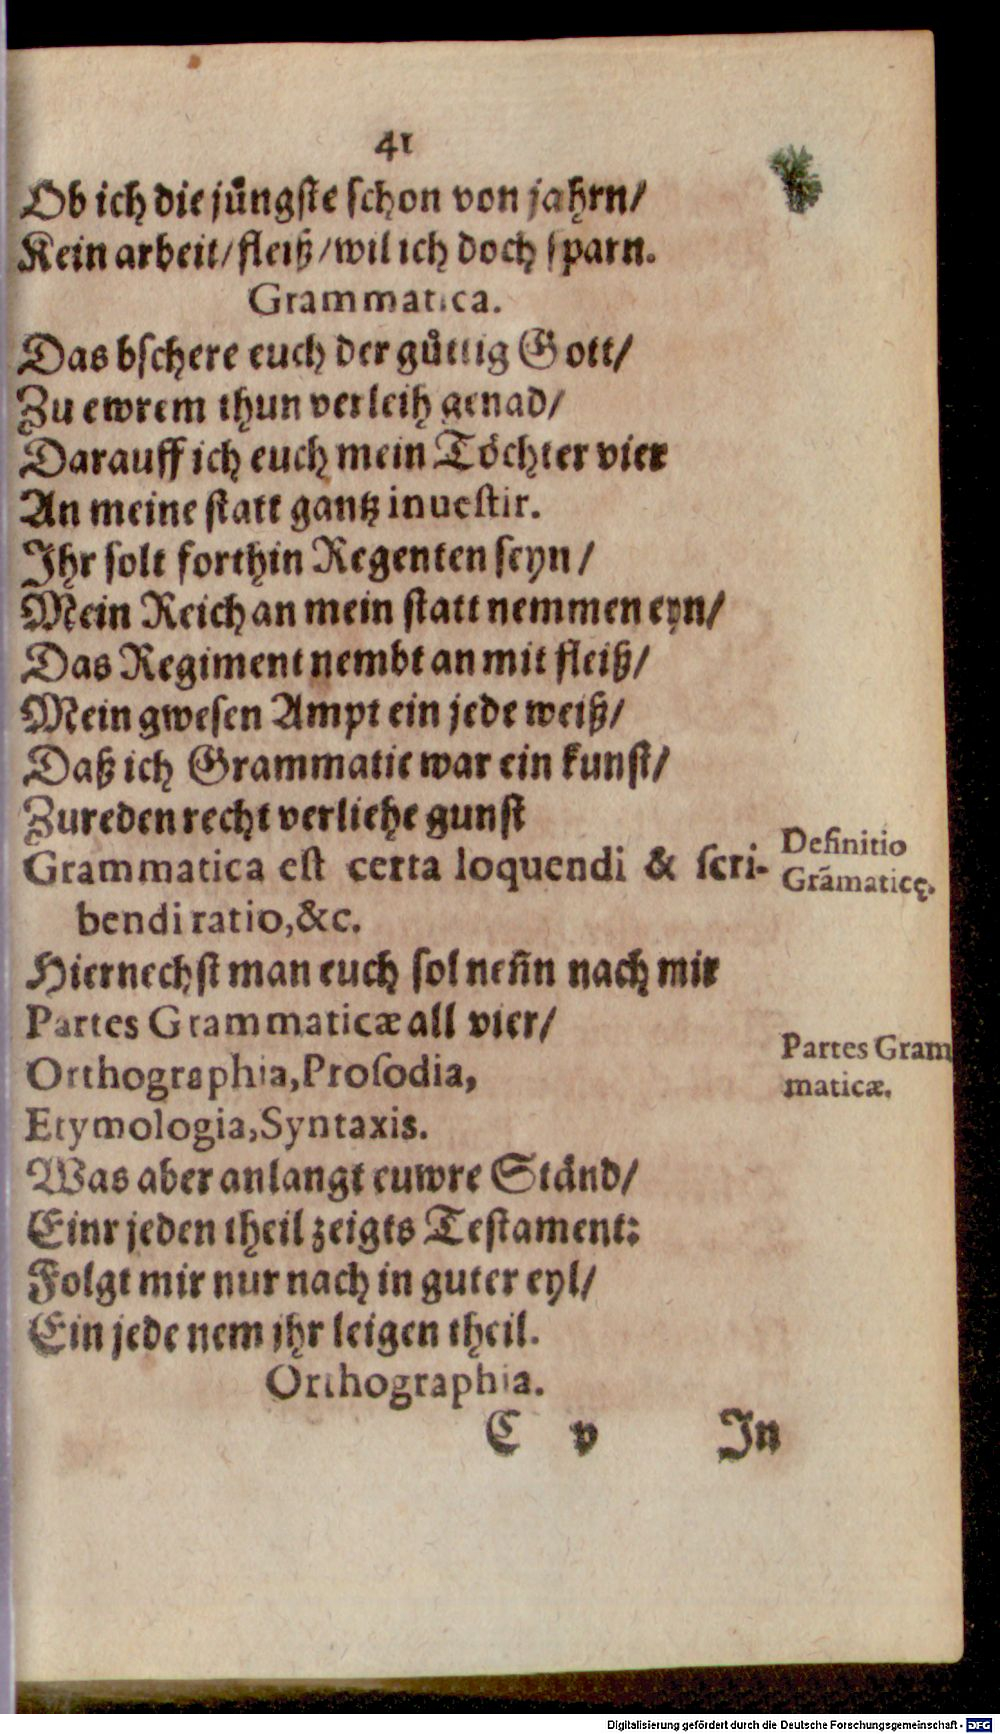 41
Ob ich die jüngste schon von jahrn/
Kein arbeit/fleiß/wil ich doch sparn.
Grammatica.
Das bschere euch der gůttig Gott/
Zu ewrem thun verleih genad/
Darauff ich euch mein Töchter vier
An meine statt gantz inuestir.
Ihr solt forthin Regenten seyn/
Mein Reich an mein statt nemmen eyn/
Das Regiment nembt an mit fleiß/
Mein gwesen Ampt ein jede weiß/
Daß ich Grammatic war ein kunst/
Zureden recht verliehe gunst
Grammatica est certa loquendi & scri-
bendi ratio,&c.
Definitio
Grãmaticę.
Hiernechst man euch sol neñn nach mir
Partes Grammaticæ all vier/
Orthographia,Prosodia,
Etymologia,Syntaxis.
Partes Gram
maticæ.
Was aber anlangt euwre Ständ/
Einr jeden theil zeigts Testament:
Folgt mir nur nach in guter eyl/
Ein jede nem jhr leigen theil.
Orthographia.
C v In
Digitalisierung gefördert durch die Deutsche Forschungsgemeinschaft - DFG